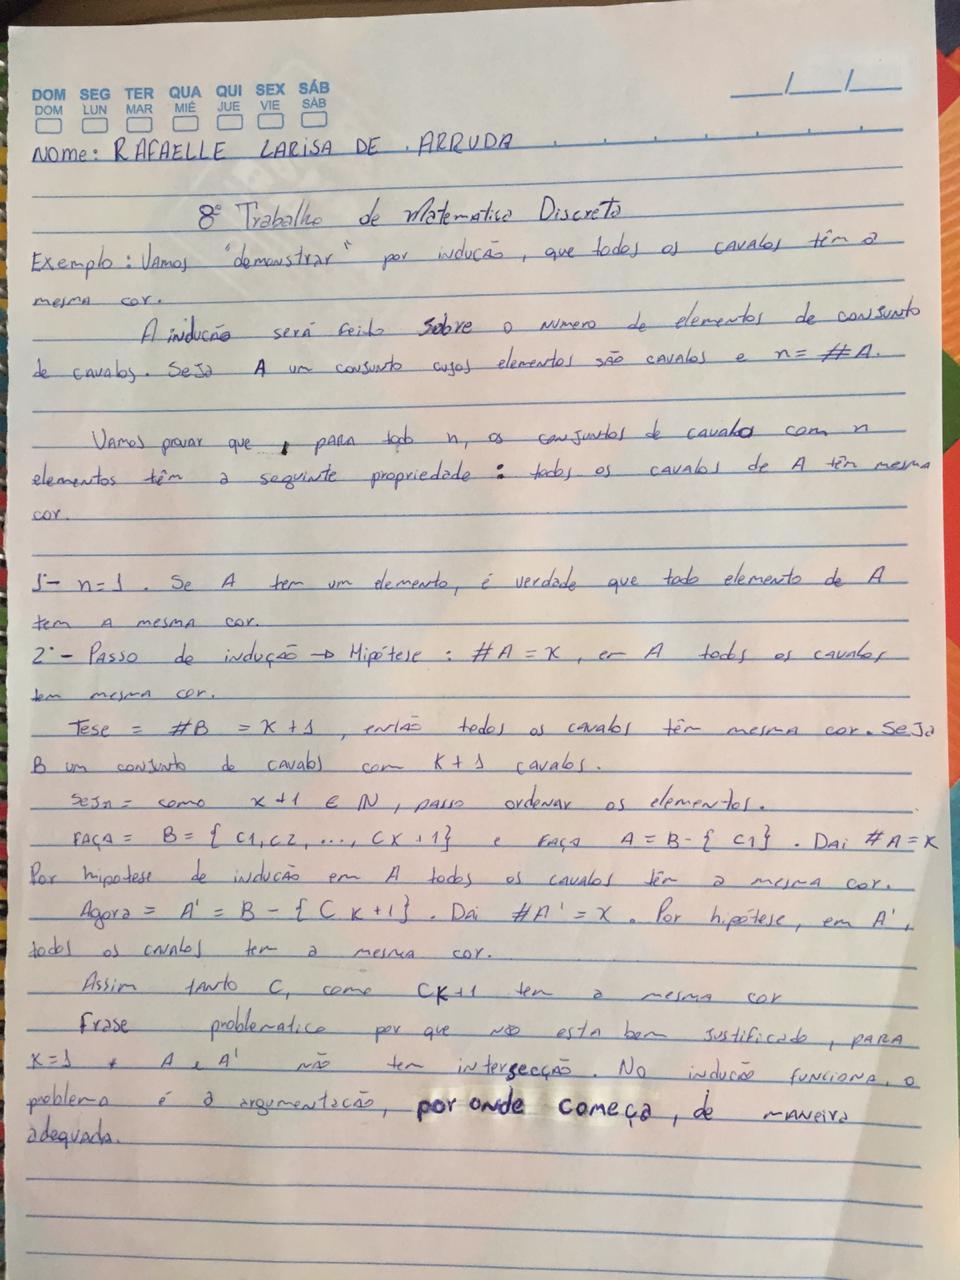 DOM SEG TER QUA QUI SEX SÁB
DOM LUN MAR MIÉ JUE VIE SÁB
__/__/__
Nome: RAFAELLE LARISA DE ARRUDA
8º Trabalho de Matematica Discreta
Exemplo: Vamos "demonstrar" por indução, que todos os cavalos têm a
mesma cor.
A indução será feito sobre o numero de elementos de conjunto
de cavalos. Seja A um conjunto cujos elementos são cavalos e n= #A.
Vamos provar que, para todo n, os conjuntos de cavalos com n
elementos têm a seguinte propriedade: todos os cavalos de A têm mesma
cor.
1- n=1. Se A tem um elemento, é verdade que todo elemento de A
tem a mesma cor.
2- Passo de indução → Hipótese: #A=K, em A todos os cavalos
tem mesma cor.
Tese = #B = K+1, então todos os cavalos têm mesma cor. Seja
B um conjunto de cavalos com K+1 cavalos.
Sejn= como K+1 ∈ IN, passo ordenar os elementos.
Faça= B={C1,C2,...,CK+1} e Faça A=B-{C1}. Dai #A=K
Por hipotese de indução em A todos os cavalos têm a mesma cor.
Agora = A'=B-{CK+1}. Dai #A'=K. Por hipótese, em A',
todos os cavalos tem a mesma cor.
Assim tanto C, como CK+1 tem a mesma cor
Frase problematico por que não esta bem justificado, para
K=1 A e A' não tem intersecção. No indução funciona, o
problema é a argumentação, por onde começa, de maneira
adequada.